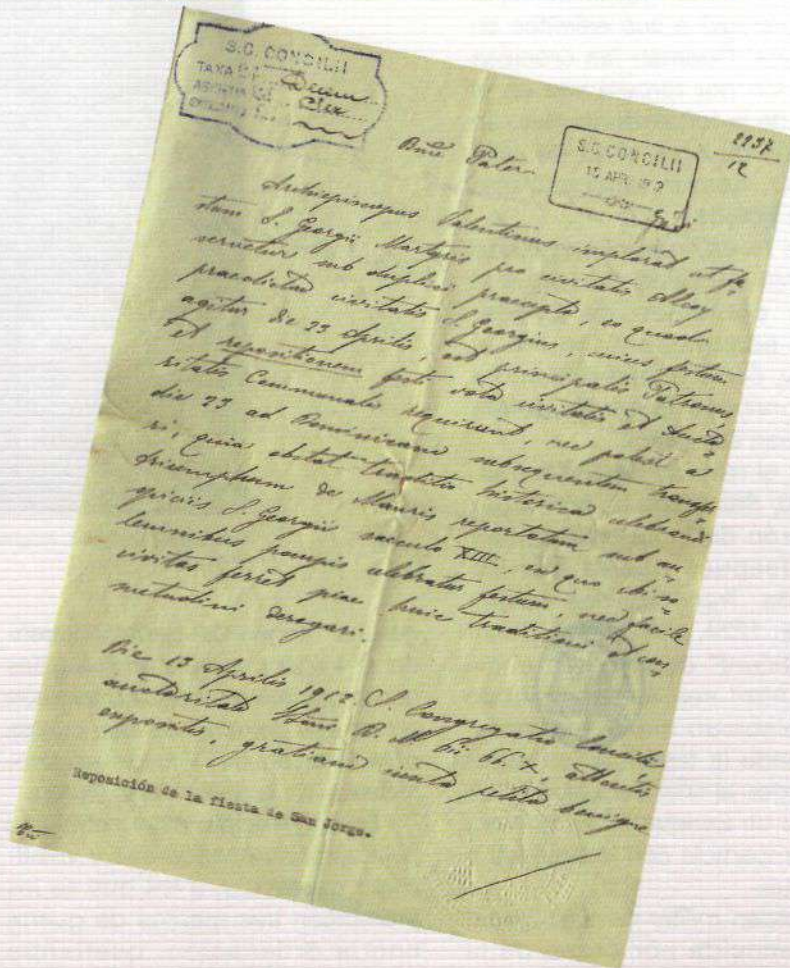 S.C. CONCILII
TAXA
S.C. CONCILII
13 APR. 912
2237
12
Bme Pater
Archiepiscopus Valentinus implorat ut fe-
stum S. Georgii Martyris pro civitate Alcoy
servetur sub duplici praecepto, eo quod
praedictae civitatis S. Georgius, cuius festum
agitur die 23 Aprilis, est principalis Patronus,
et repositionem festi vota civitatis et Aucto-
ritatis Communalis requirunt, nec potest a
die 23 ad Dominicam subsequentem transfer-
ri, quia obstat traditio historica celebrandi
triumphum de Mauris reportatum sub au-
spiciis S. Georgii saeculo XIII, ex quo ibi so-
lemnibus pompis celebratur festum, nec facile
civitas ferret piae huic traditioni et con-
suetudini derogari.
Die 13 Aprilis 1912. S. Congregatio Concilii
auctoritate D. N. Pii PP. X, attentis
expositis, gratiam iuxta petita benigne
Reposición de la fiesta de San Jorge.